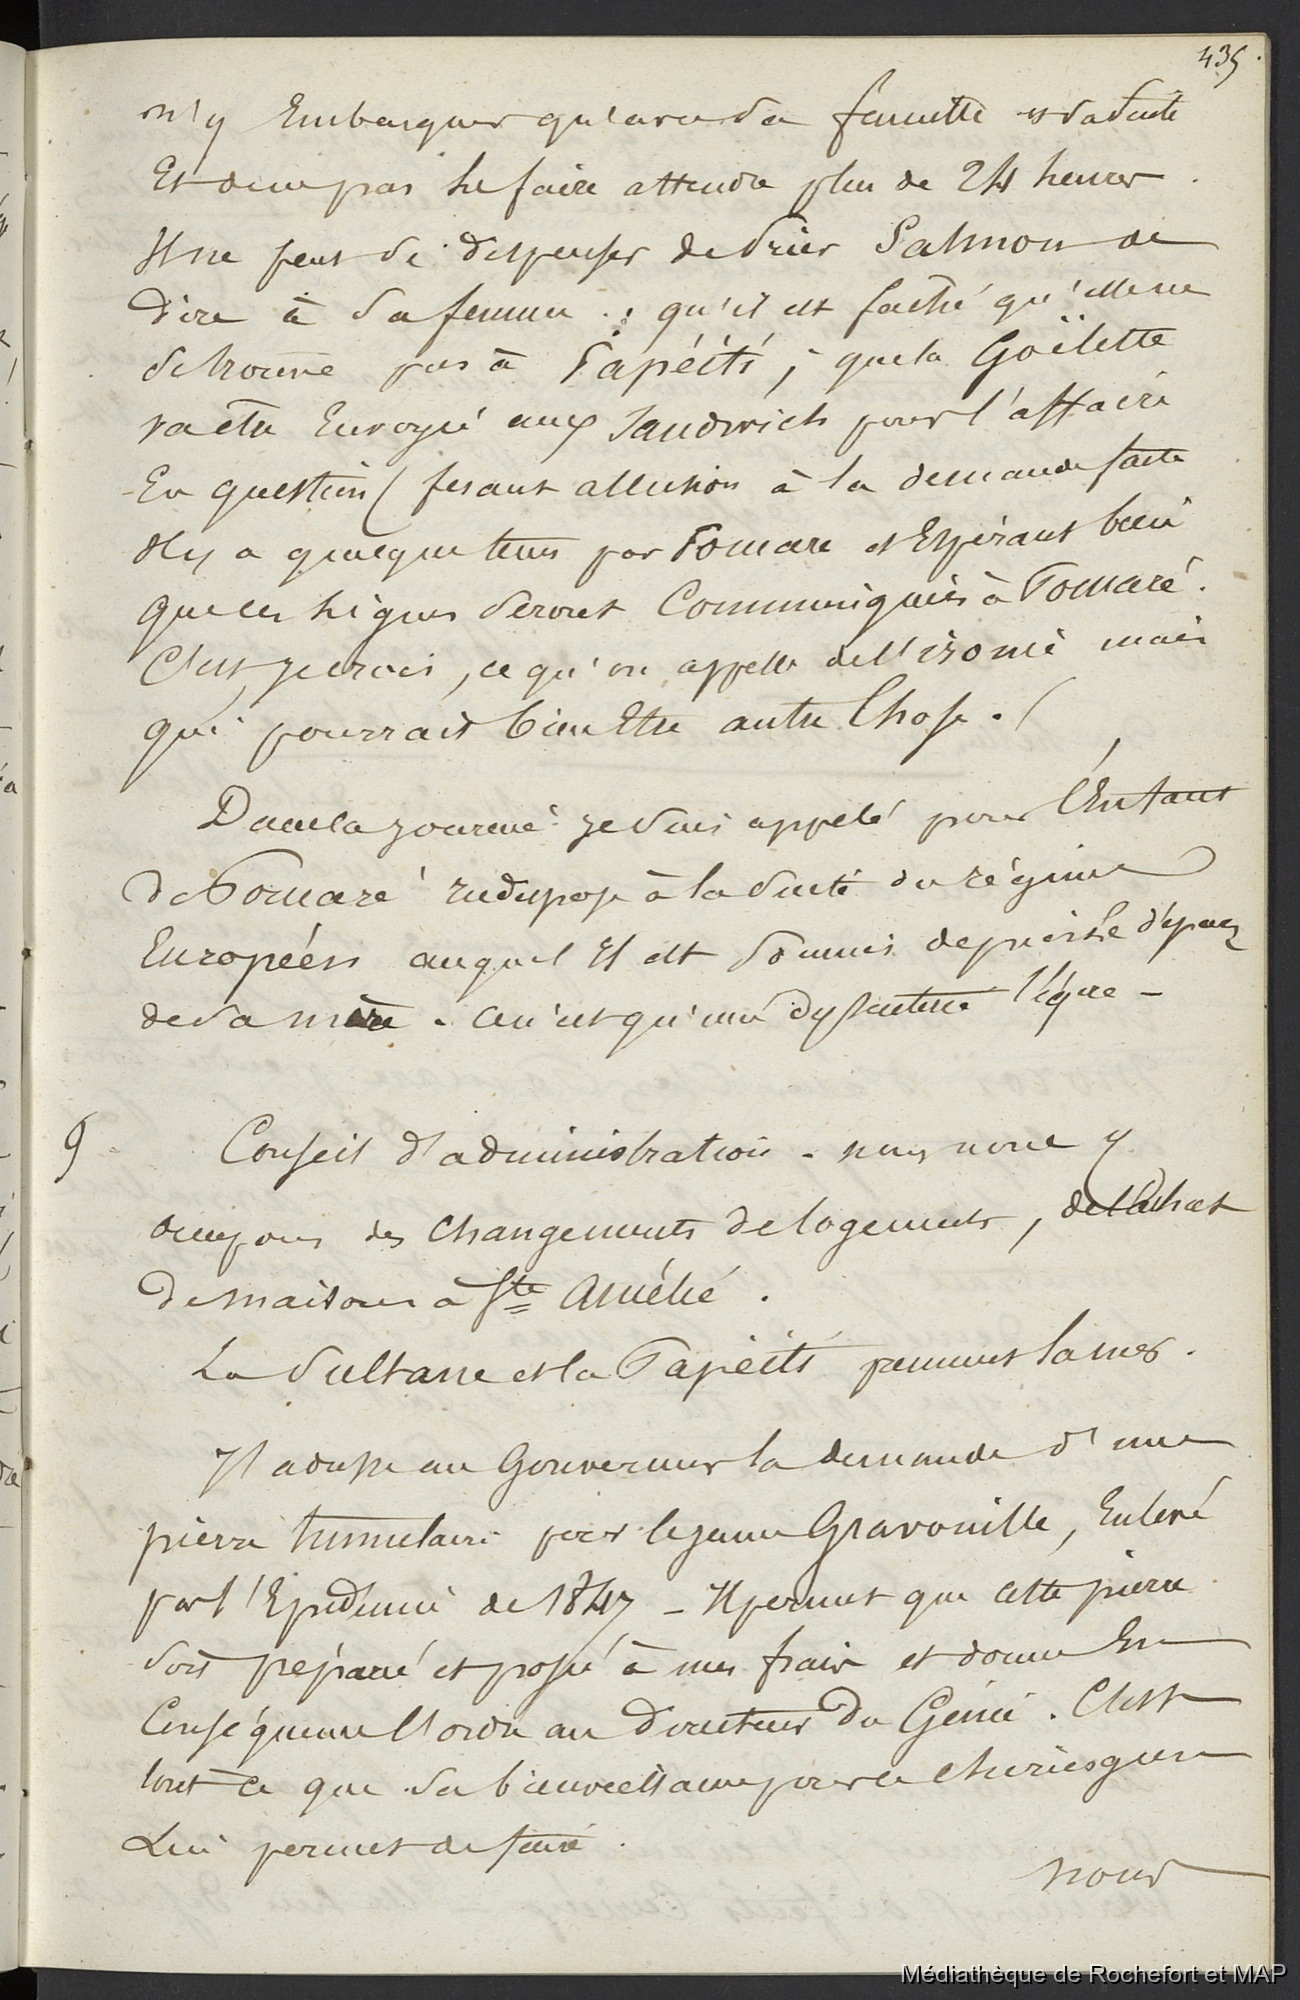 435
n'y Embarquer qu'avec sa famille et sa suite
Et de ne pas se faire attendre plus de 24 heures.
Il ne peut se dispenser de prier Salmon de
dire à sa femme : qu'il est faché qu'elle ne
se trouve pas à Papéïti, que la Goëlette
va être Envoyé aux Sandwich pour l'affaire
En question (fesant allusion à la demande faite
il y a quelque tems par Pomare et Espérant bien
que ces lignes seront Communiquées à Pomaré.
C'est, je crois, ce qu'on appelle de l'ironie mais
qui pourrait bien Etre autre Chose. (
Dans la journée je suis appelé pour l'Enfant
de Pomaré indispose à la suite du régime
Européen auquel Il est soumis depuis le départ
de sa mère. Ce n'est qu'une dyssenterie légère -
9 Conseil d'administration. nous nous y
occupons des Changements de logements, de l'achat
de maisons à Ste Amélie.
La Sultane et la Papéiti prennent la mer.
J'adresse au Gouverneur la demande d'une
pierre tumulaire pour le jeune Gravouille, Enlevé
par l'Epidemie de 1847 - Il permet que cette pierre
soit préparé et posée à mes frais et donne En
Conséquence l'ordre au directeur du Génie. C'est
tout ce que sa bienveillance pour ce chirurgien
Lui permet de faire.
nous
Médiathèque de Rochefort et MAP